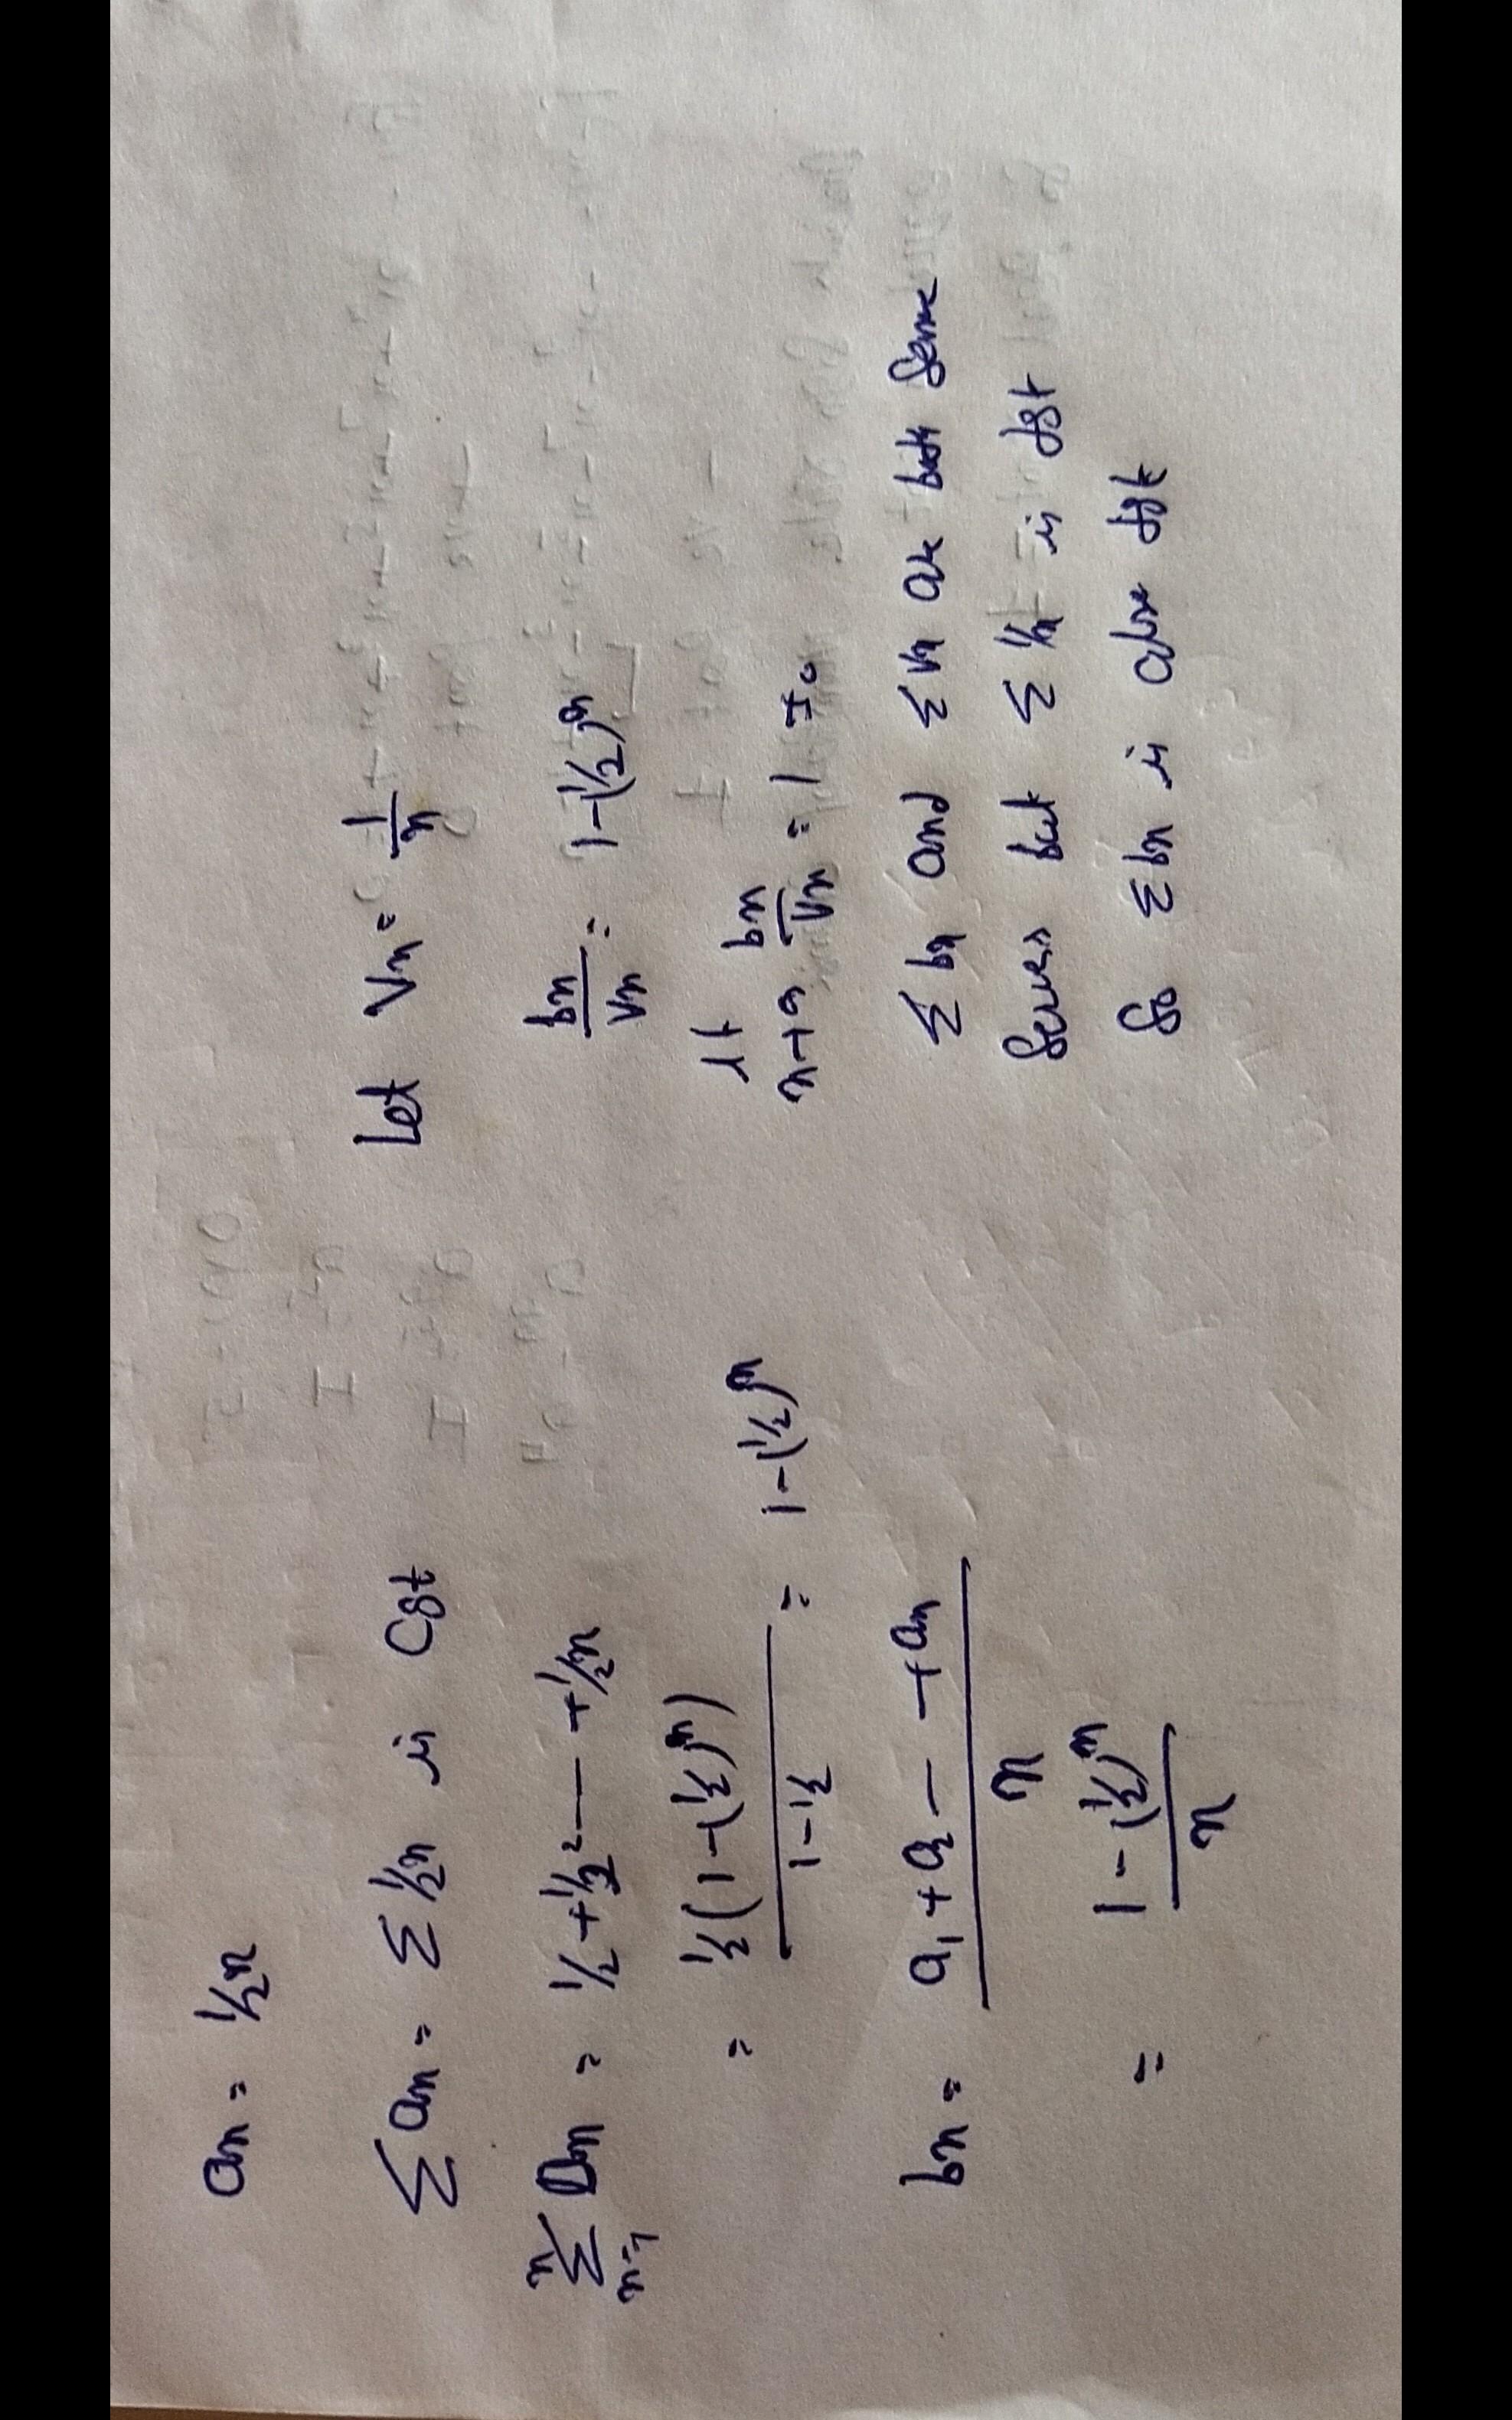 an = 1/2n
Σ an = Σ 1/2n is Cgt
n Σ n=1 an = 1/2 + 1/2² --- + 1/2n
= 1/2 (1-(1/2)n) / 1-1/2 = 1-(1/2)n
bn = a1 + a2 - - + an / n
= 1 - (1/2)n / n
Let Vn = 1/n
bn/Vn = 1-(1/2)n
lt n→∞ bn/Vn = 1 ≠ 0
Σ bn and Σ Vn are both same
Series but Σ 1/n is dgt
So Σ bn is also dgt